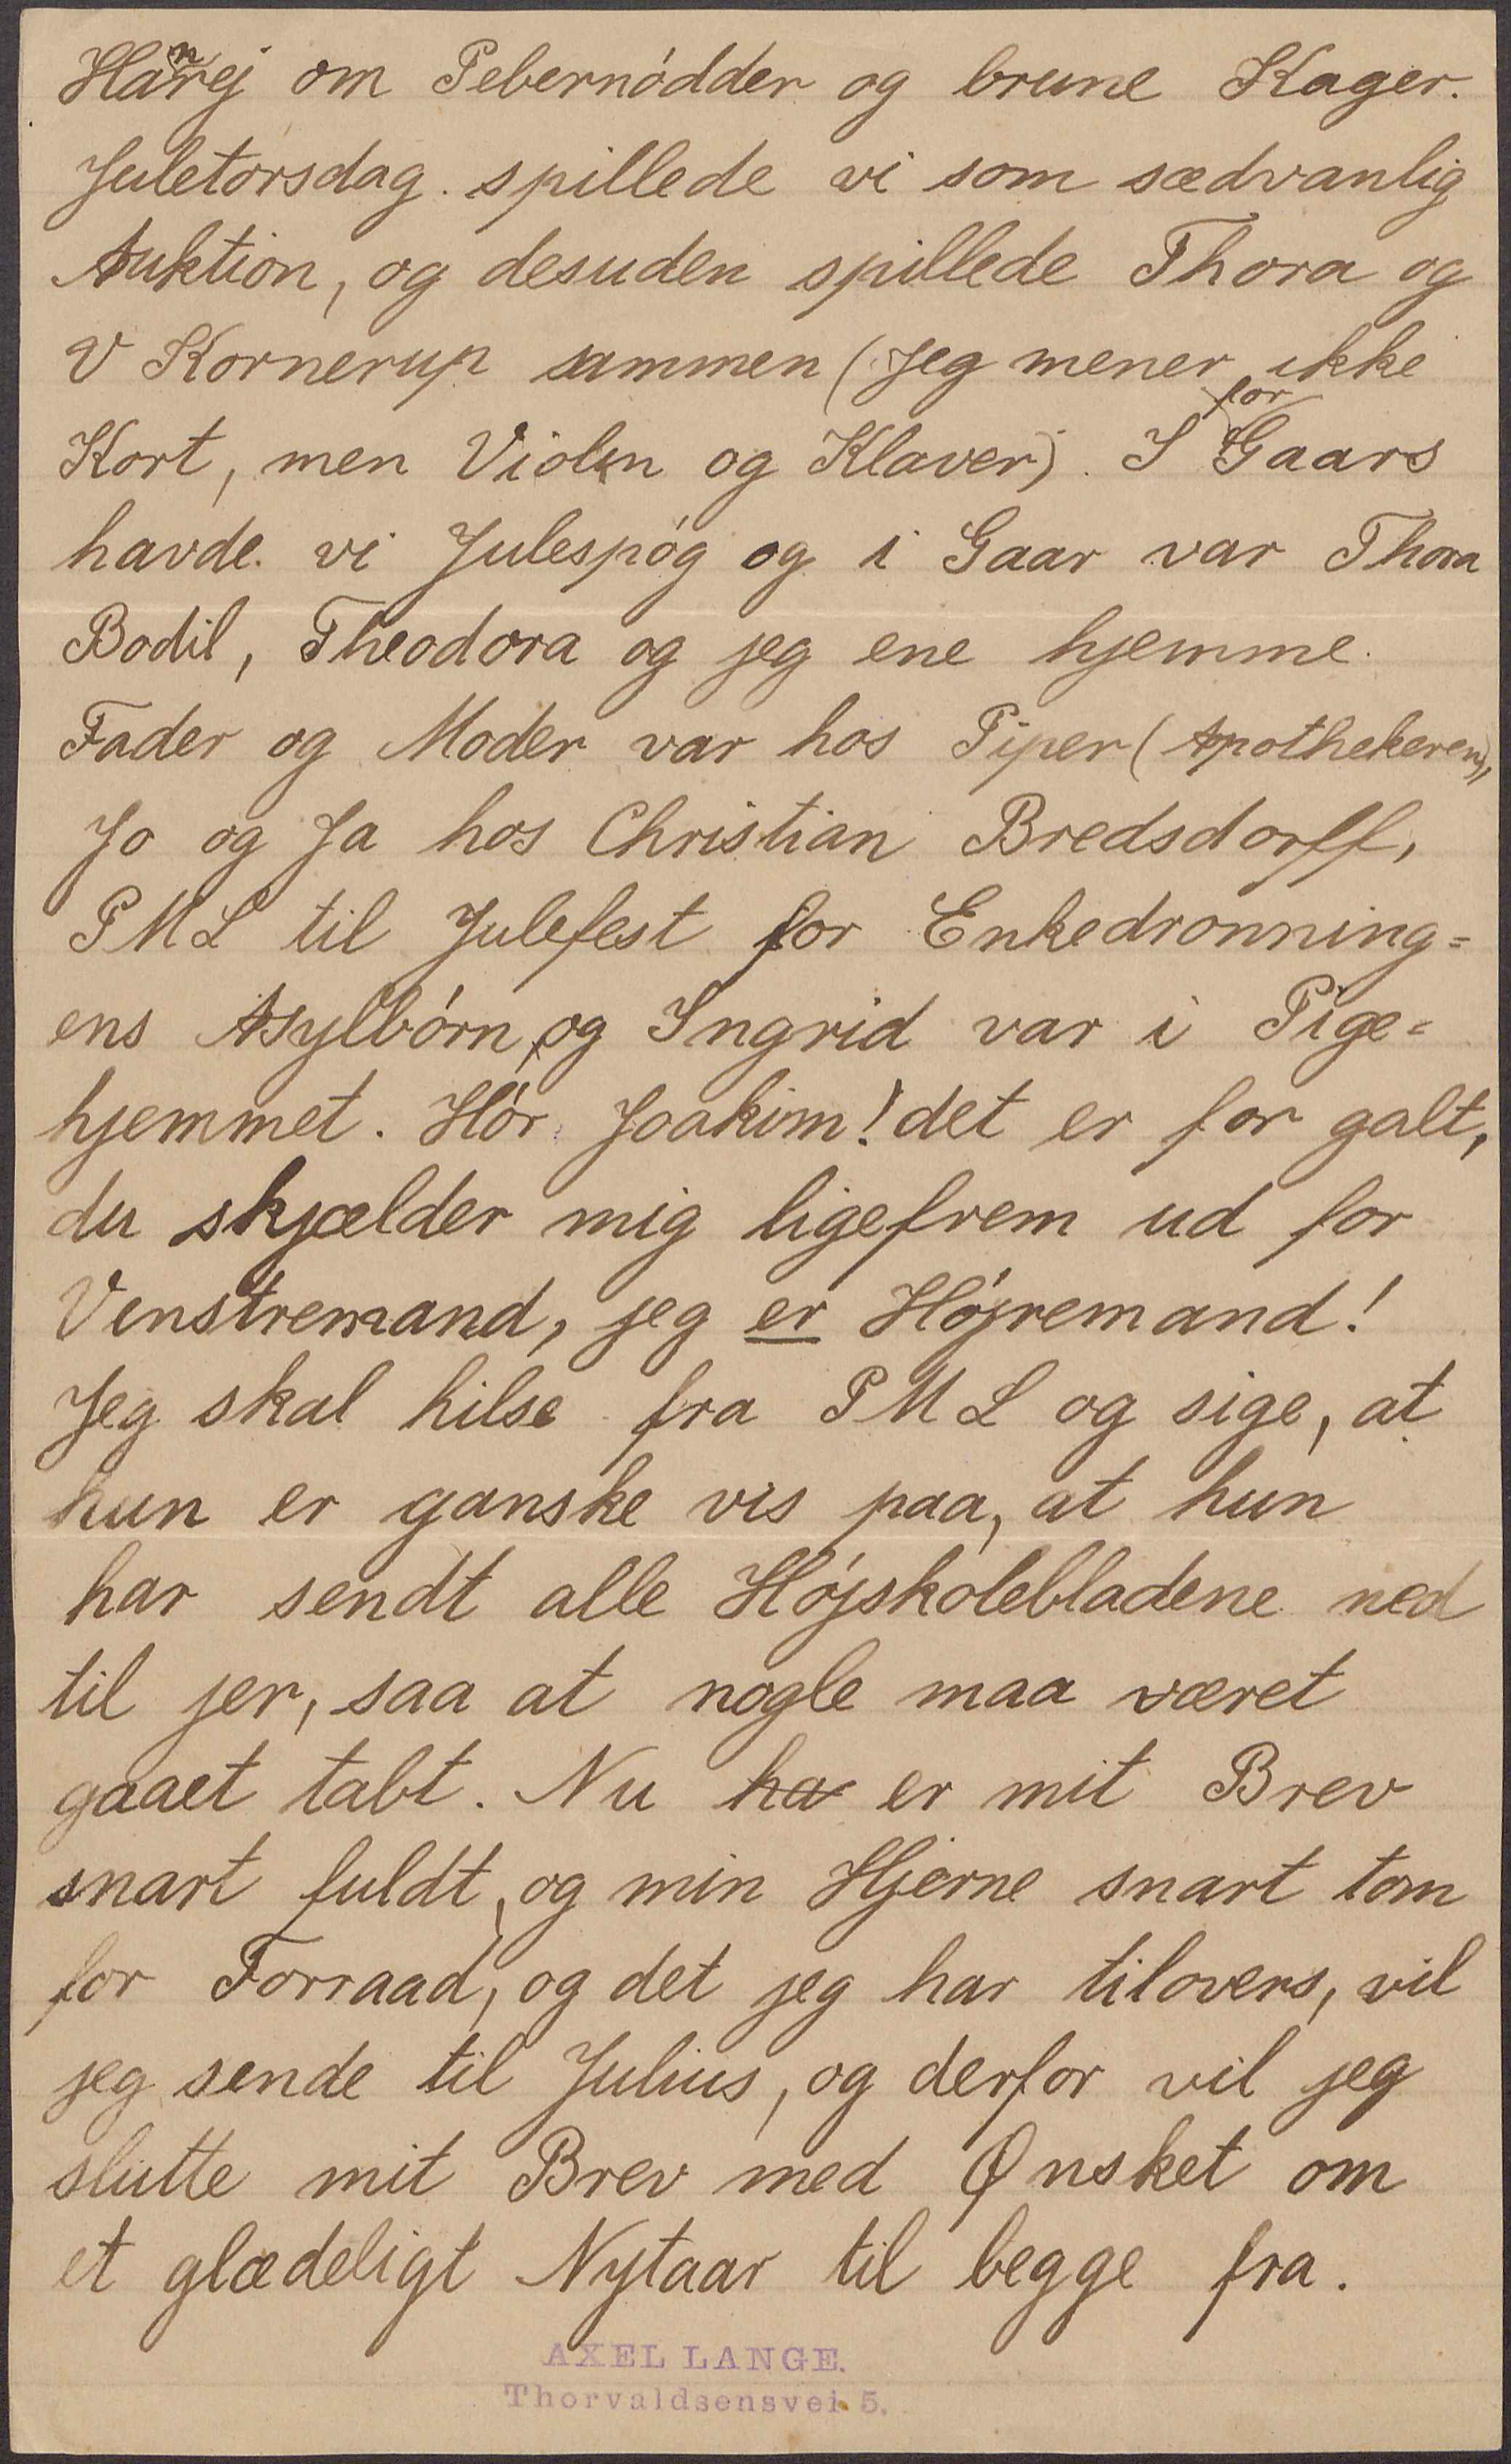 Hanrej om Pebernódder og brune Kager.
Juletorsdag spillede vi som sædvanlig
Auktion, og desuden spillede Thora og
V Kornerup sammen (Jeg mener ikke
Kort, men Violin og Klaver). I for Gaars
havde vi Julespóg og i Gaar var Thora
Bodil, Theodora og jeg ene hjemme.
Fader og Moder var hos Piper (Apothekeren),
Jo og Ja hos Christian Bredsdorff,
PML til Julefest for Enkedronning=
ens Asylbórn, og Ingrid var i Pige=
hjemmet. Hór Joakim! det er for galt,
du skjælder mig ligefrem ud for
Venstremand, jeg er Hójremand!
Jeg skal hilse fra PML og sige, at
hun er ganske vis paa, at hun
har sendt alle Hójskolebladene ned
til jer, saa at nogle maa været
gaaet tabt. Nu ha er mit Brev
snart fuldt, og min Hjerne snart tom
for Forraad, og det jeg har tilovers, vil
jeg sende til Julius, og derfor vil jeg
slutte mit Brev med Ønsket om
et glædeligt Nytaar til begge fra.
AXEL LANGE.
Thorvaldsensvei 5.